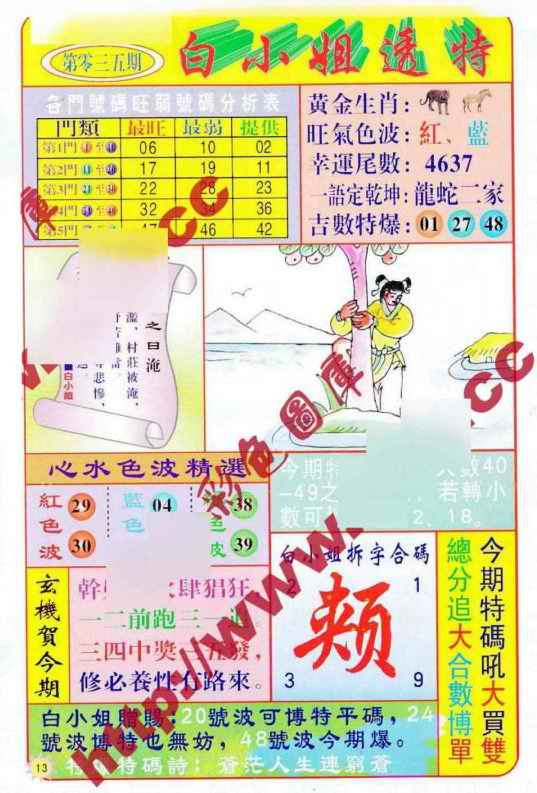 第零三五期
白小姐透特
各門號碼旺弱號碼分析表
門類 最旺 最弱 提供
第1門 06 10 02
第2門 17 19 11
第3門 22 23
第4門 32 34 36
第5門 47 46 42
黃金生肖:
旺氣色波:紅、藍
幸運尾數:4637
一語定乾坤:龍蛇二家
吉數特爆:01 27 48
之日淹
濫、村莊被淹,
悲慘、
■白小姐
心水色波精選
紅色波 29 30
藍色 04
38 39
今期
40
-49之 若轉小
數可 2、18。
白小姐拆字合碼
2 1
頰
3 9
今期特碼吼大買雙
總分追大合數博單
玄機賀今期
幹 肆猖狂,
一二前跑三一追。
三四中獎一五發,
修必養性有路來。
白小姐贈賜:20號波可博特平碼,24
號波博特也無妨,48號波今期爆。
特碼詩:蒼茫人生連窮蒼
13
彩色圖庫
http://www.
cc